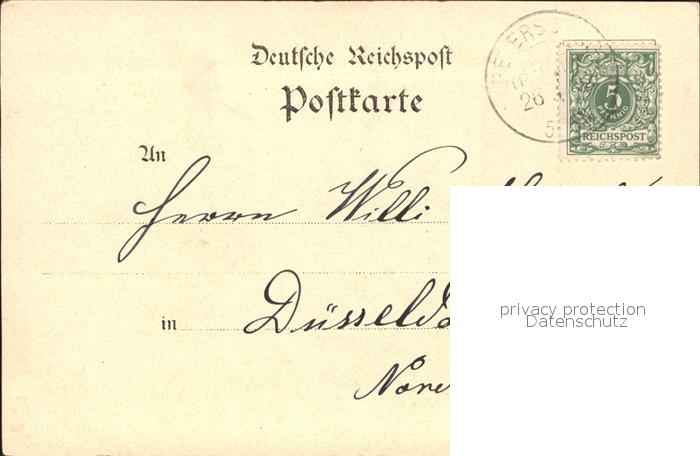 Deutsche Reichspost
Postkarte
26
5
REICHSPOST
An
Herrn Willi
in Düsseldo
privacy protection
Datenschutz